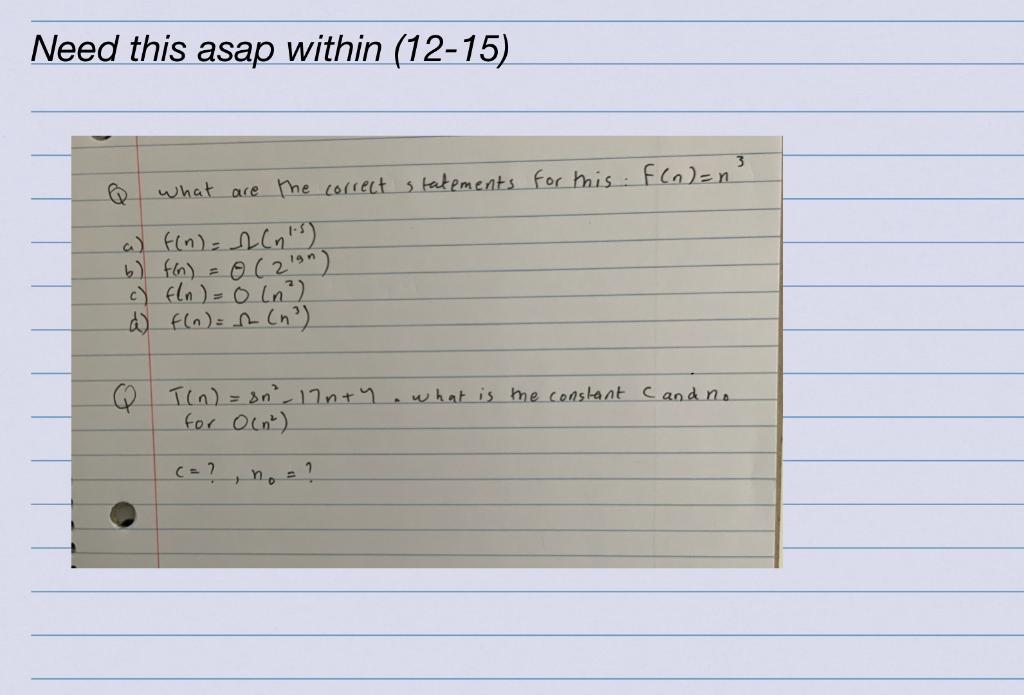 Need this asap within (12-15)
Q what are the correct statements for this : F(n)=n³
a) f(n) = Ω(n^1.5)
b) f(n) = Θ(2^lgn)
c) f(n) = O(n²)
d) f(n) = Ω(n³)
Q T(n) = 8n² - 17n + 4 . what is the constant C and n₀
for O(n²)
C = ? , n₀ = ?